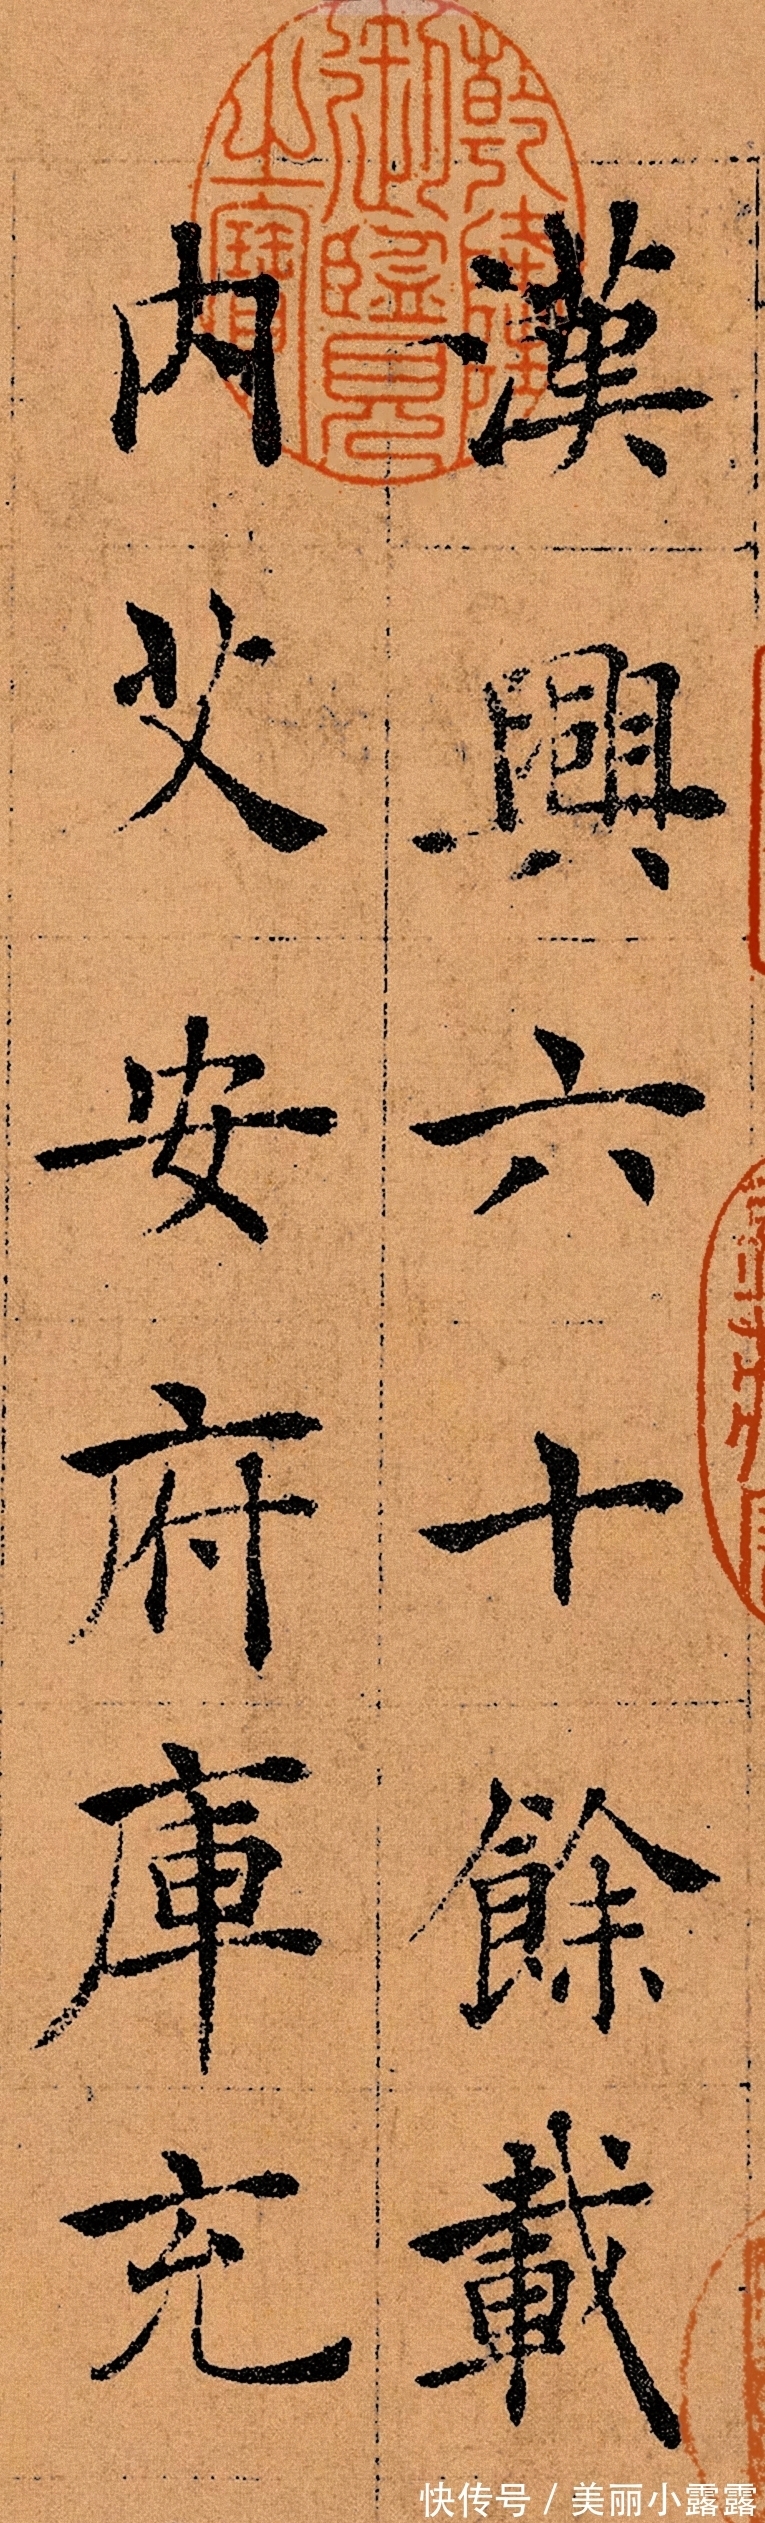 漢興六十餘載
内艾安府庫充
乾隆
御覽
之寶
快传号 / 美丽小露露